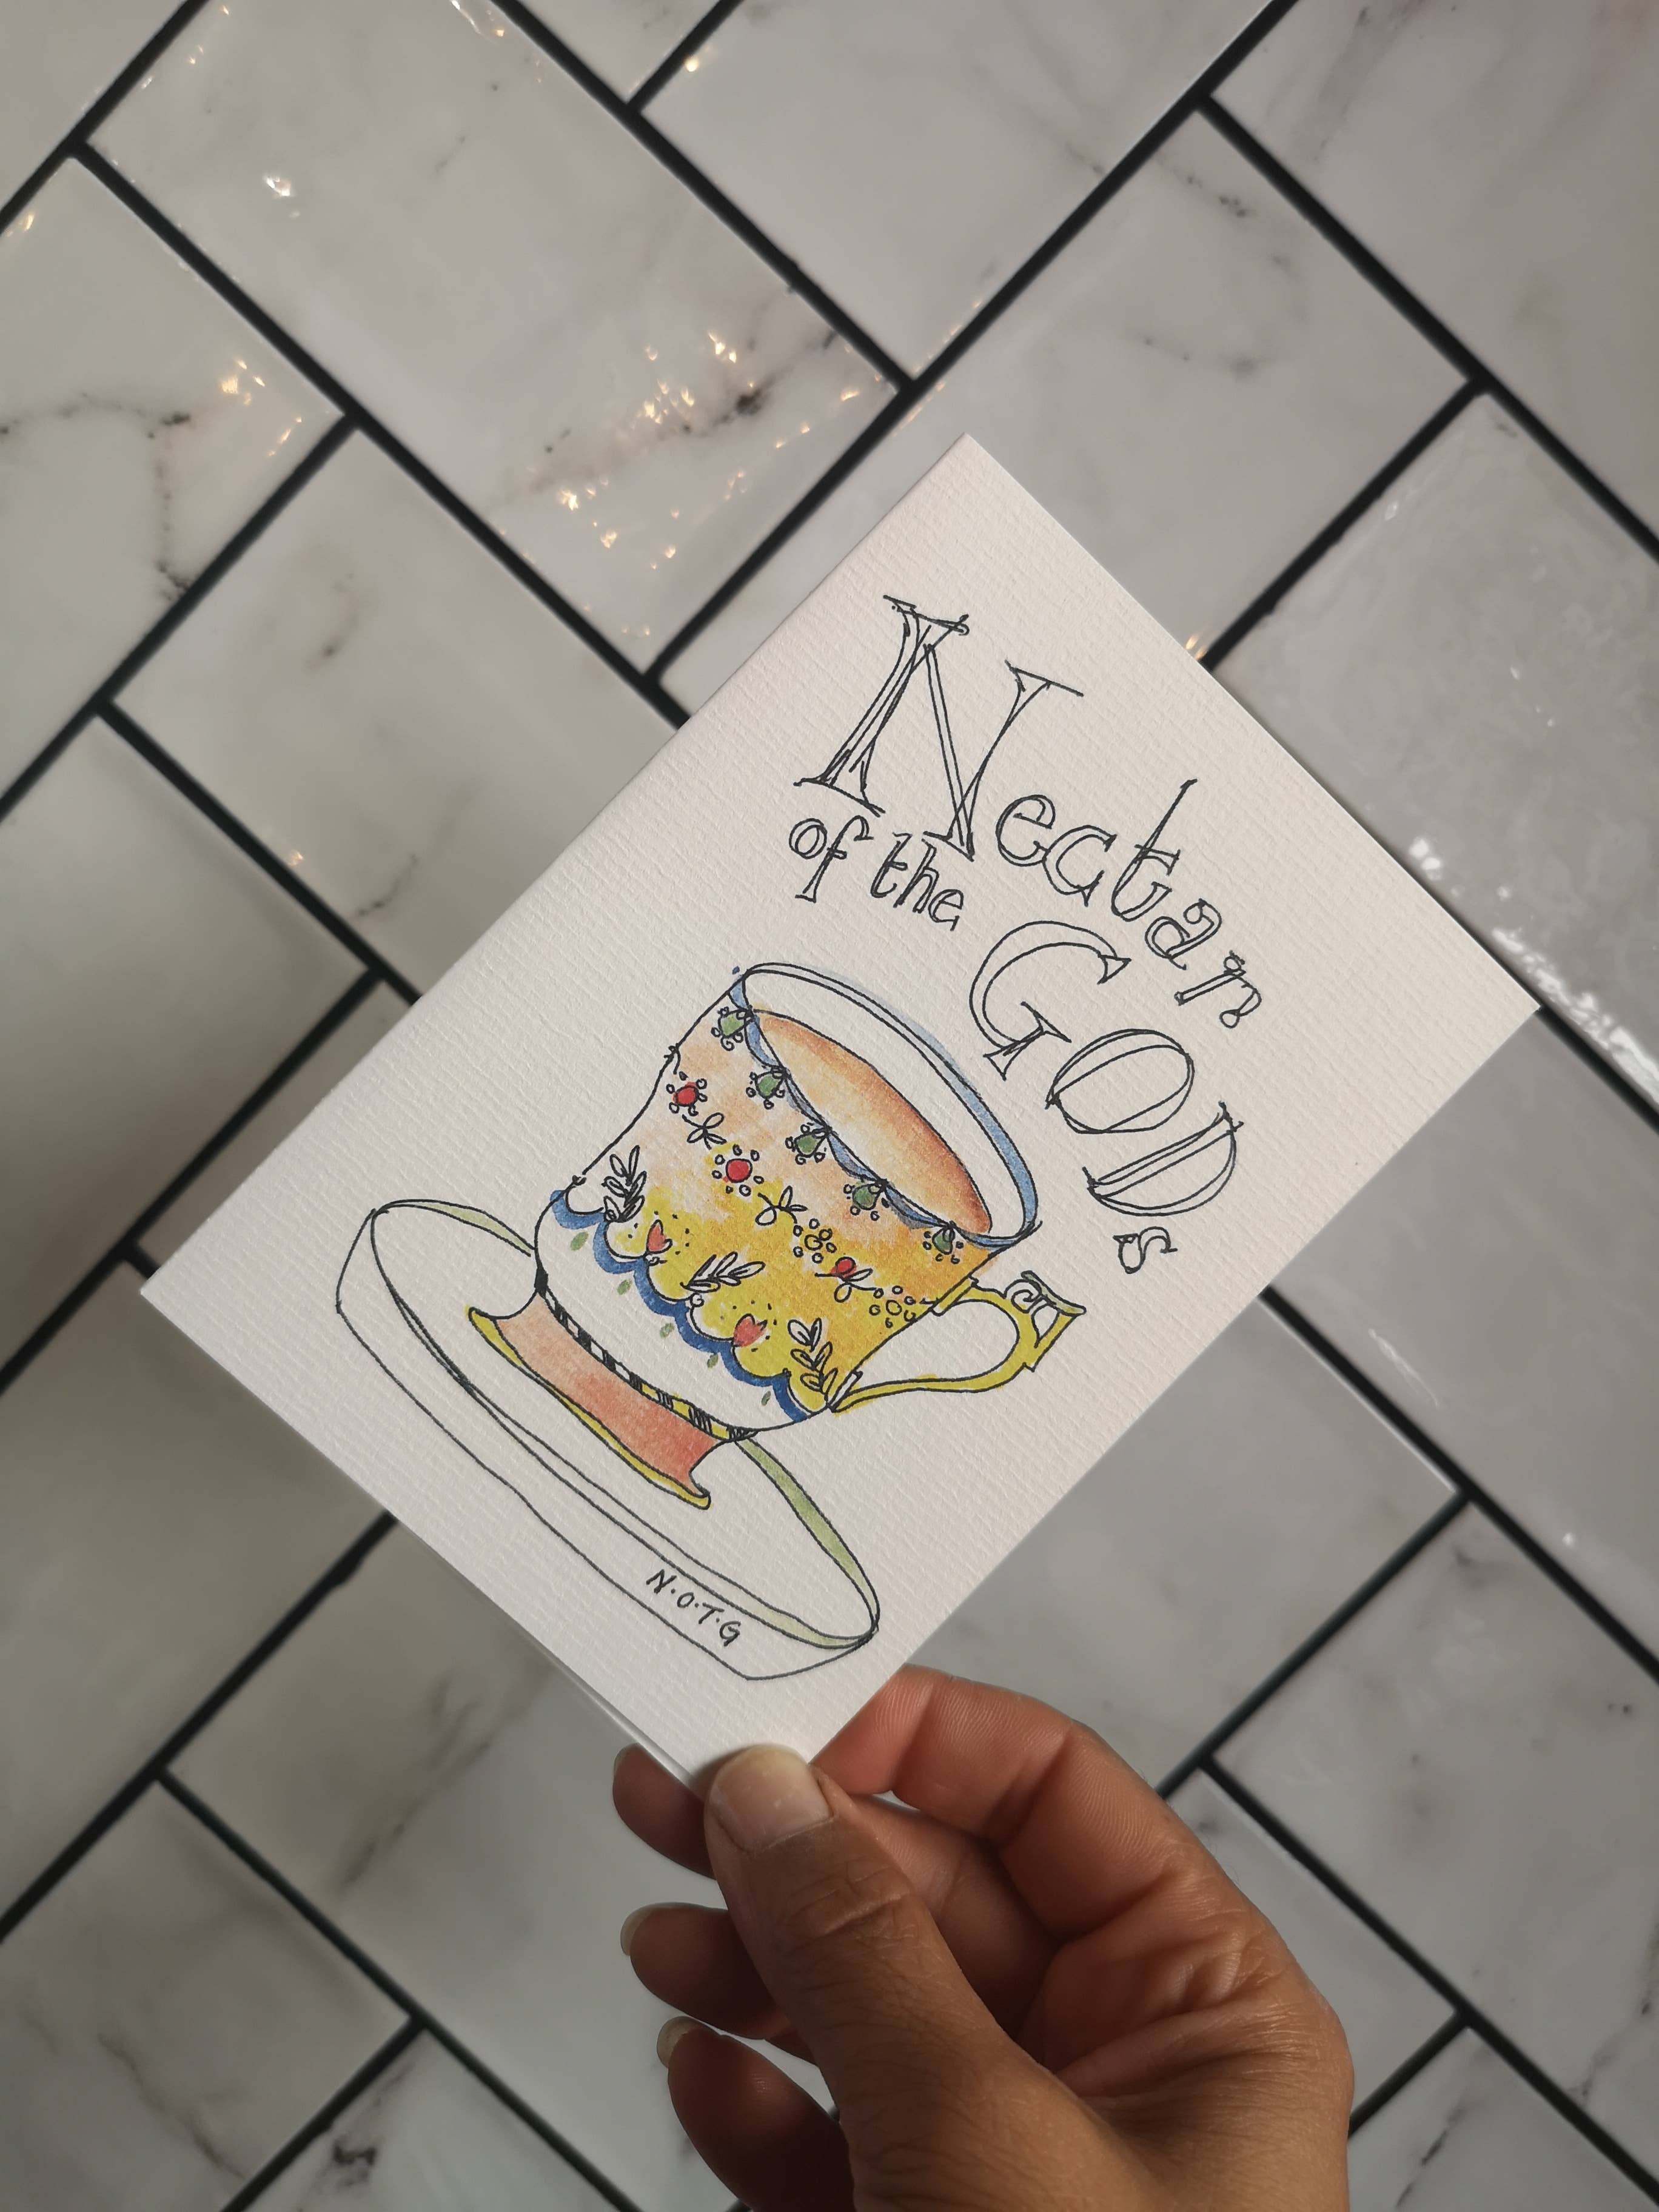 Nectar
of the GODs
N.O.T.G